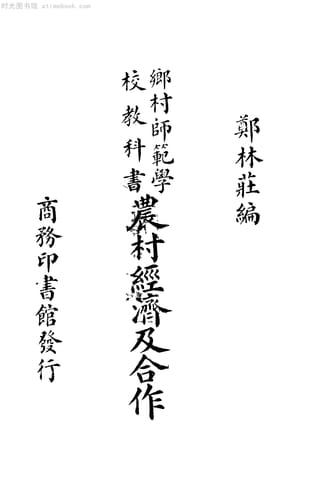 时光图书馆 atimebook.com
鄭林莊編
鄉村師範學
校教科書
農村經濟及合作
商務印書館發行